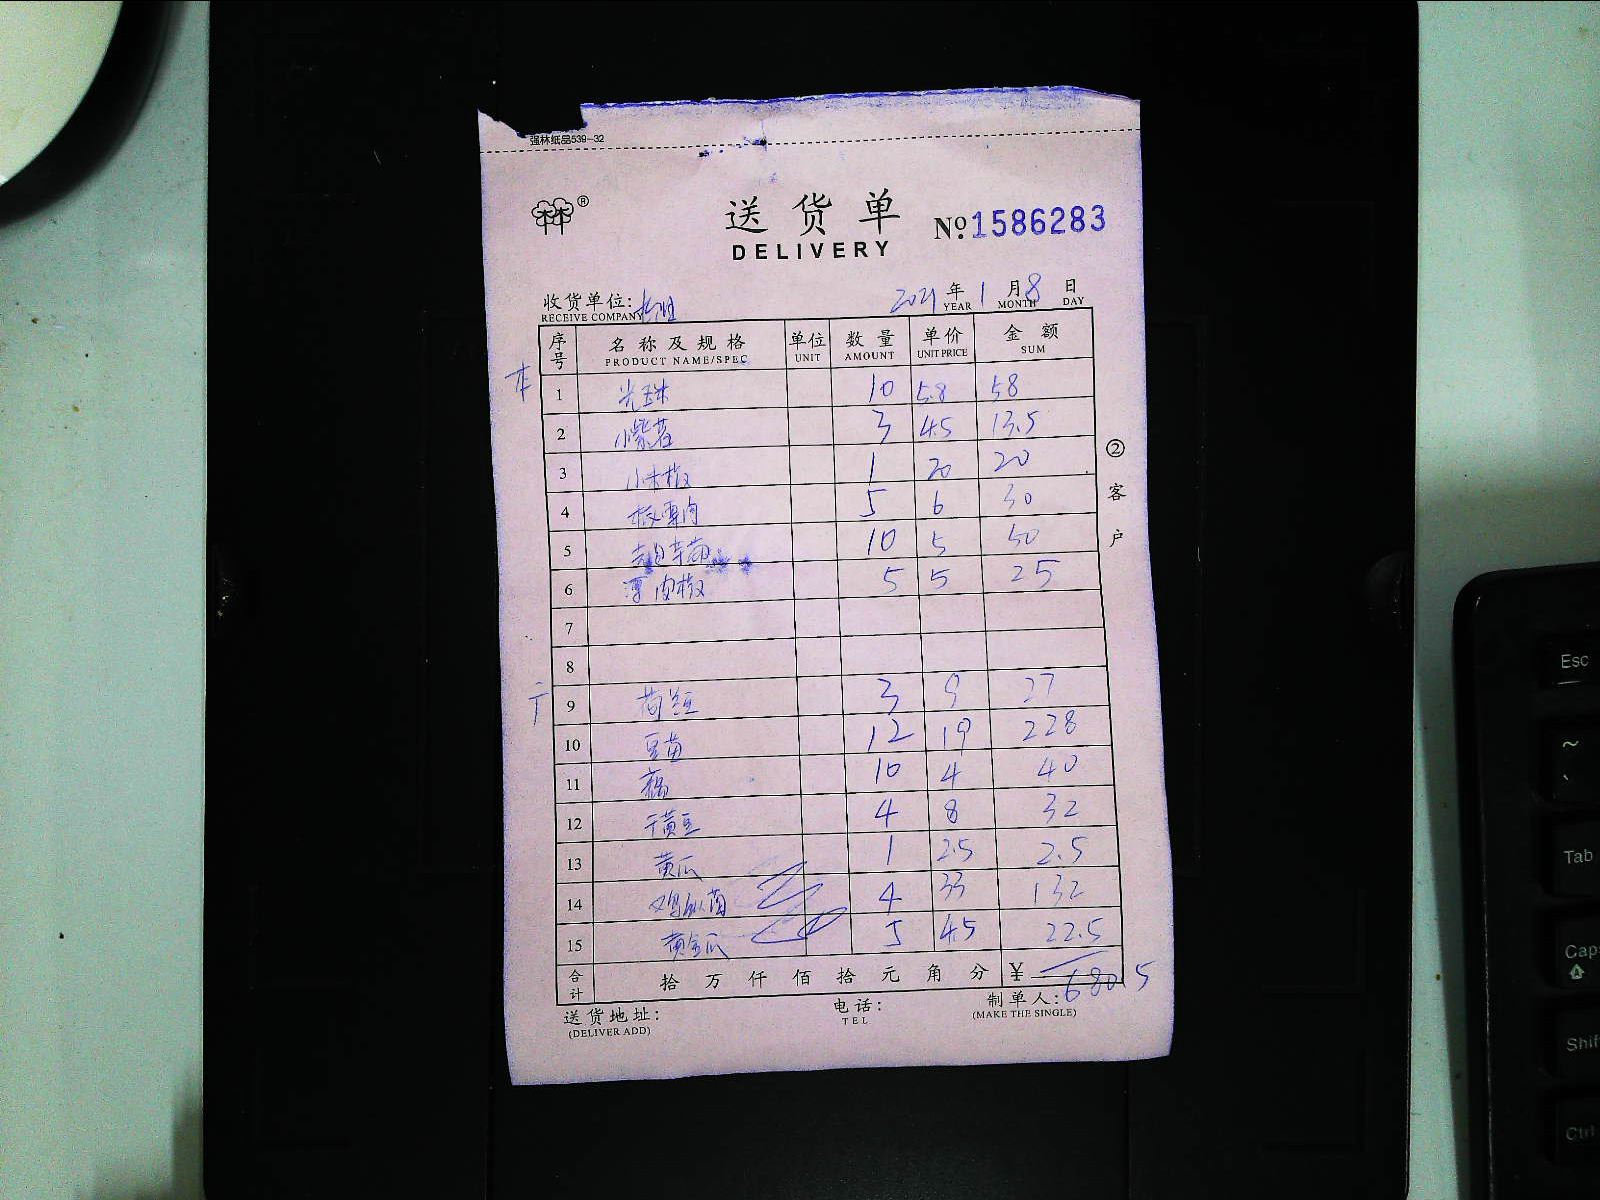 强林纸品539-32
林林®
送货单 №1586283
DELIVERY
收货单位: 2021年1月8日
RECEIVE COMPANY YEAR MONTH DAY
序号 名称及规格 单位 数量 单价 金额
PRODUCT NAME/SPEC UNIT AMOUNT UNIT PRICE SUM
本
1 光珠 10 5.8 58
2 小紫茄 3 4.5 13.5
3 小米椒 1 20 20
4 5 6 30
5 10 5 50
6 薄皮椒 5 5 25
7
8
9 荷兰豆 3 9 27
10 豆苗 12 19 228
11 藕 10 4 40
12 干黄豆 4 8 32
13 黄瓜 1 2.5 2.5
14 鸡枞菌 4 33 132
15 黄金瓜 5 4.5 22.5
合计 拾万仟佰拾元角分 ¥ 680.5
送货地址: 电话: 制单人:
(DELIVER ADD) TEL (MAKE THE SINGLE)
②客户
Esc
~
`
Tab
Caps
Shift
Ctrl